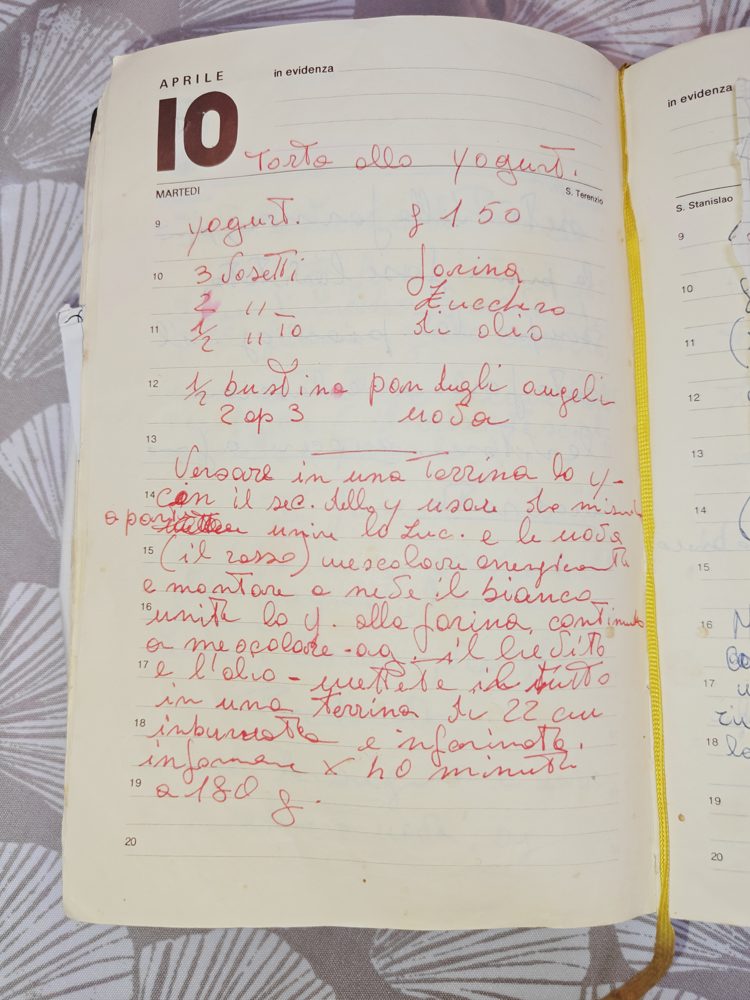 APRILE
in evidenza
10
Torta allo yogurt.
MARTEDI
S. Terenzio
9 yogurt. g 150
10 3 Vasetti farina
2 " zucchero
11 1/2 " To di olio
12 1/2 bustina pan degli angeli
2 op 3 uova
13
Versare in una Terrina lo y-
14 con il sec. dello y usare da misu
a parte unire lo zuc. e le uova
15 (il rosso) mescolare energicamte
e montare a neve il bianco
16 unite lo y. alla farina, continuate
a mescolare - ag. il lievito
17 e l'olio - mettete il tutto
in una terrina di 22 cm
18 imburrata e infarinata.
infornare x 40 minuti
19 a 180 g.
20
in evidenza
S. Stanislao
9
10
11
12
13
14
15
16
17
18
19
20